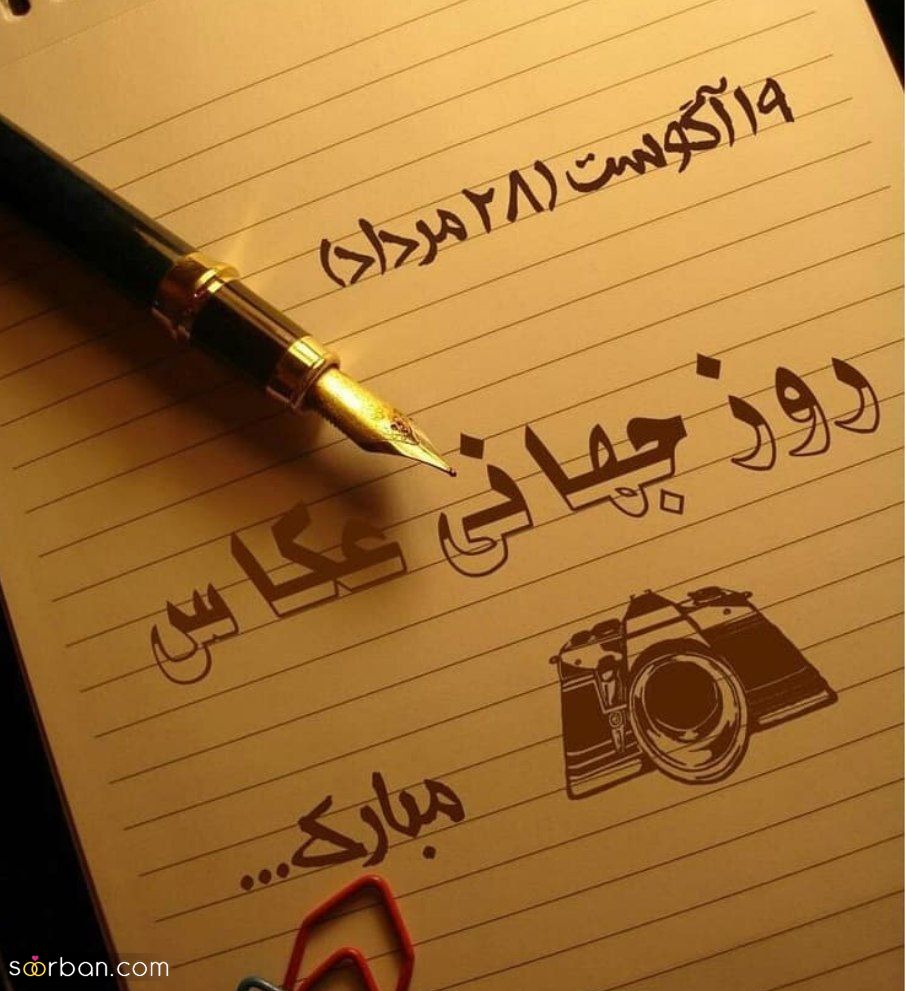 ۱۹ آگوست (۲۸ مرداد)
روز جهانی عکاس
مبارک...
soorban.com